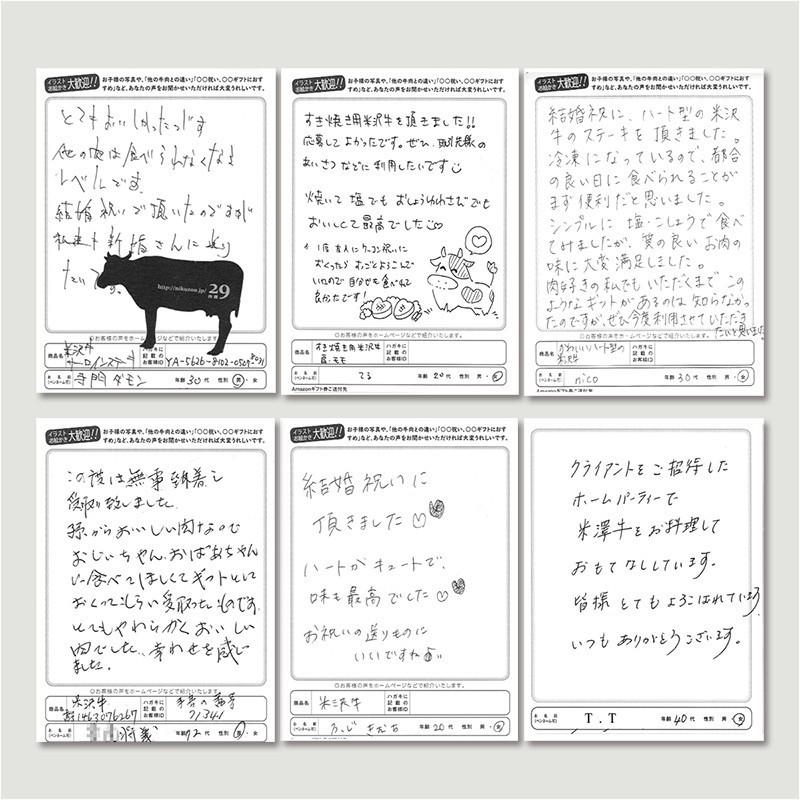 イラスト
お絵かき 大歓迎!! お子様の写真や、「他の牛肉との違い」「○○祝い、○○ギフトにおす
すめ」など、あなたの声をお聞かせいただければ大変うれしいです。
とてもおいしかったです
他の肉は食べられなくなる
レベルです。
結婚祝いで頂いたのですが
私達も新婚さんに送り
たいです。
http://nikuzou.jp/ 29
◎お客様の声をホームページなどで紹介いたします。
商品名 米沢牛
サーロインステーキ
ハガキに
記載の
お客様ID
YA-5626-8102-0529
お名前
(ペンネーム可) 寺門ダモン 年齢 30 代 性別 男・女
イラスト
お絵かき 大歓迎!! お子様の写真や、「他の牛肉との違い」「○○祝い、○○ギフトにおす
すめ」など、あなたの声をお聞かせいただければ大変うれしいです。
すき焼き用米沢牛を頂きました!!
応募してよかったです。ぜひ、取引先様の
あいさつなどに利用したいです
焼いて塩でもおしょうゆわさびでも
おいしくて最高でした
1度友人にケッコン祝いに
おくったらすっごとよろこんで
いたので自分でも食べれて
良かったです!
◎お客様の声をホームページなどで紹介いたします。
商品名 すき焼き用米沢牛
肩・モモ
ハガキに
記載の
お客様ID
お名前
(ペンネーム可) てる 年齢 20 代 性別 男・女
Amazonギフト券ご送付先
イラスト
お絵かき 大歓迎!! お子様の写真や、「他の牛肉との違い」「○○祝い、○○ギフトにおす
すめ」など、あなたの声をお聞かせいただければ大変うれしいです。
結婚祝に、ハート型の米沢
牛のステーキを頂きました。
冷凍になっているので、都合
の良い日に食べられることが
まず便利だと思いました。
シンプルに塩・こしょうで食べ
てみましたが、質の良いお肉の
味に大変満足しました。
肉好きの私でもいただくまでこの
ようなギフトがあるのは知らなかっ
たのですが、ぜひ今度利用させていただき
たいと思いました
◎お客様の声をホームページなどで紹介いたします。
商品名 かわいいハート型の
米沢牛
ハガキに
記載の
お客様ID
お名前
(ペンネーム可) nico 年齢 30 代 性別 男・女
イラスト
お絵かき 大歓迎!! お子様の写真や、「他の牛肉との違い」「○○祝い、○○ギフトにおす
すめ」など、あなたの声をお聞かせいただければ大変うれしいです。
この度は無事到着し
受取り致しました。
孫からおいしい肉なので
おじいちゃん、おばあちゃん
に食べてほしくてギフトとして
おくってもらい受取ったものです。
とてもやわらかくおいしい
肉でした。幸わせを感じ
ました。
◎お客様の声をホームページなどで紹介いたします。
商品名 米沢牛
ハガキに
記載の
お客様ID
71341
お名前
(ペンネーム可) 年齢 72 代 性別 男・女
イラスト
お絵かき 大歓迎!! お子様の写真や、「他の牛肉との違い」「○○祝い、○○ギフトにおす
すめ」など、あなたの声をお聞かせいただければ大変うれしいです。
結婚祝いに
頂きました
ハートがキュートで、
味も最高でした
お祝いの送りものに
いいですね
◎お客様の声をホームページなどで紹介いたします。
商品名 米沢牛
ハガキに
記載の
お客様ID
お名前
(ペンネーム可) 年齢 20 代 性別 男・女
クライアントをご招待した
ホームパーティーで
米澤牛をお料理して
おもてなししています。
皆様とてもよろこばれています
いつもありがとうございます。
お名前
(ペンネーム可) T.T 年齢 40 代 性別 男・女